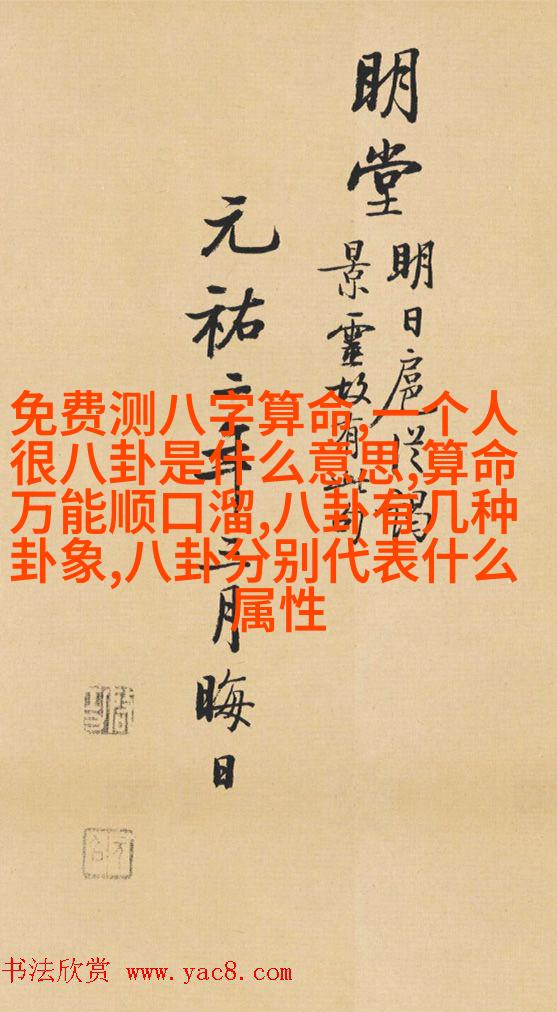 明堂
明日扈從謁
景靈故有此句
元祐二年三月晦日
免费测八字算命,一个人
很八卦是什么意思,算命
万能顺口溜,八卦有几种
卦象,八卦分别代表什么
属性
书法欣赏 www.yac8.com